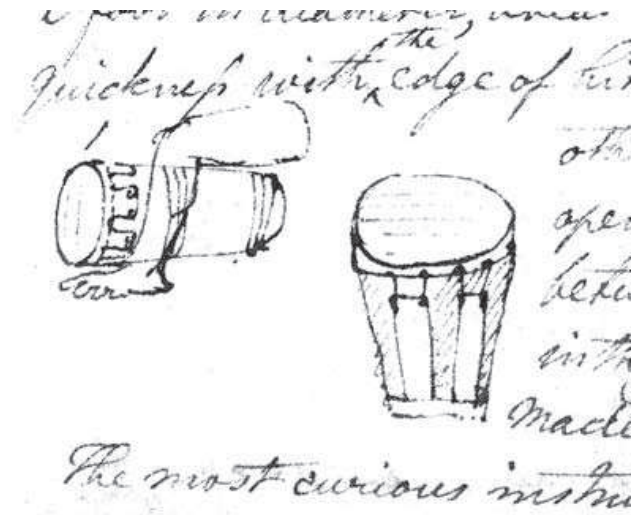 a foot in diameter,
quickneſs with the edge of hi
oth
open
betw
in th
Made
The most curious instru